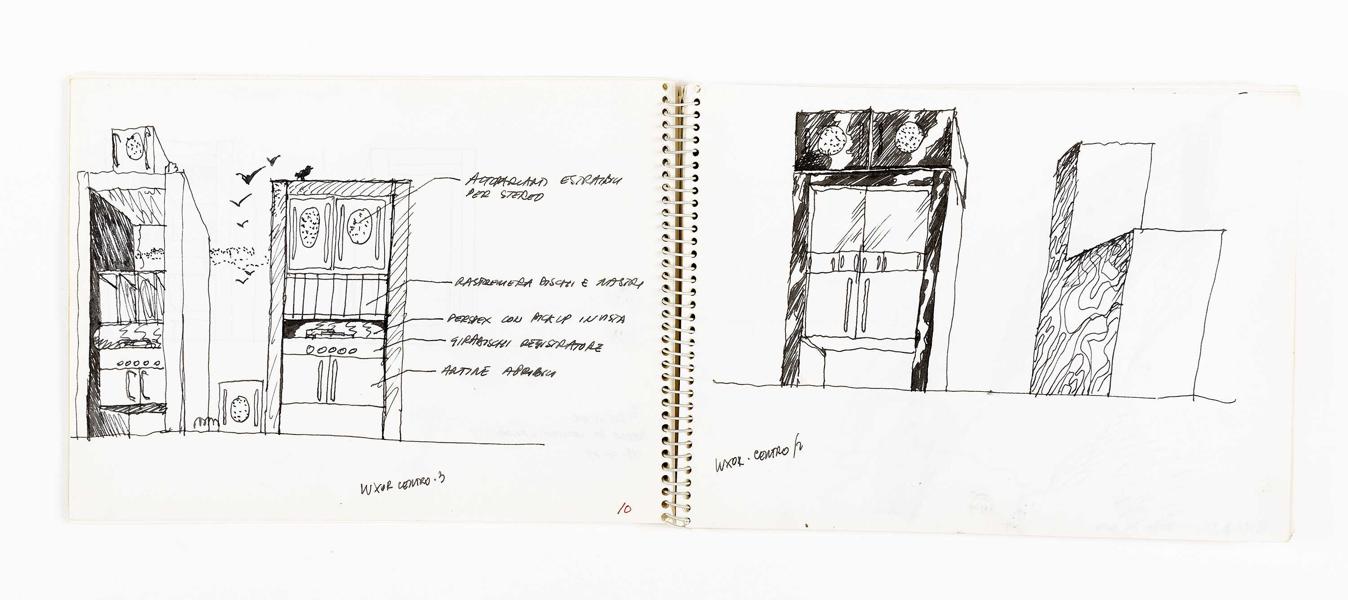 ALTOPARLANTI ESTRAIBILI
PER STEREO
RASTRELLIERA DISCHI E NASTRI
PERSPEX CON PICK UP IN VISTA
GIRADISCHI REGISTRATORE
ANTINE APRIBILI
LUXOR CONTRO . 3
10
LUXOR . CONTRO / 2